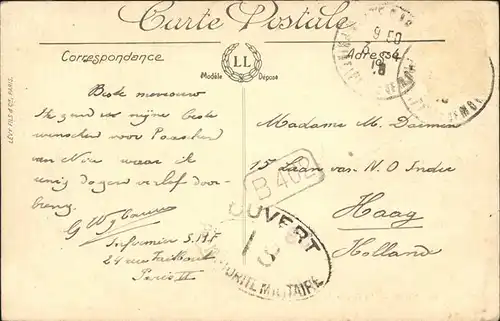 Carte Postale
Correspondance
Adresse
LL
Modèle Déposé
LÉVY FILS & Cie, PARIS.
9 50
Beste mevrouw
Ik zend u mijne beste
wenschen voor Paaschen
van Nice waar ik
enig dagen verlof door-
breng.
Infirmier S.
24 rue Taitbout
Paris II
Madame M.
15 Laan van N.O Indie
Haag
Holland
B 402
OUVERT
AUTORITÉ MILITAIRE